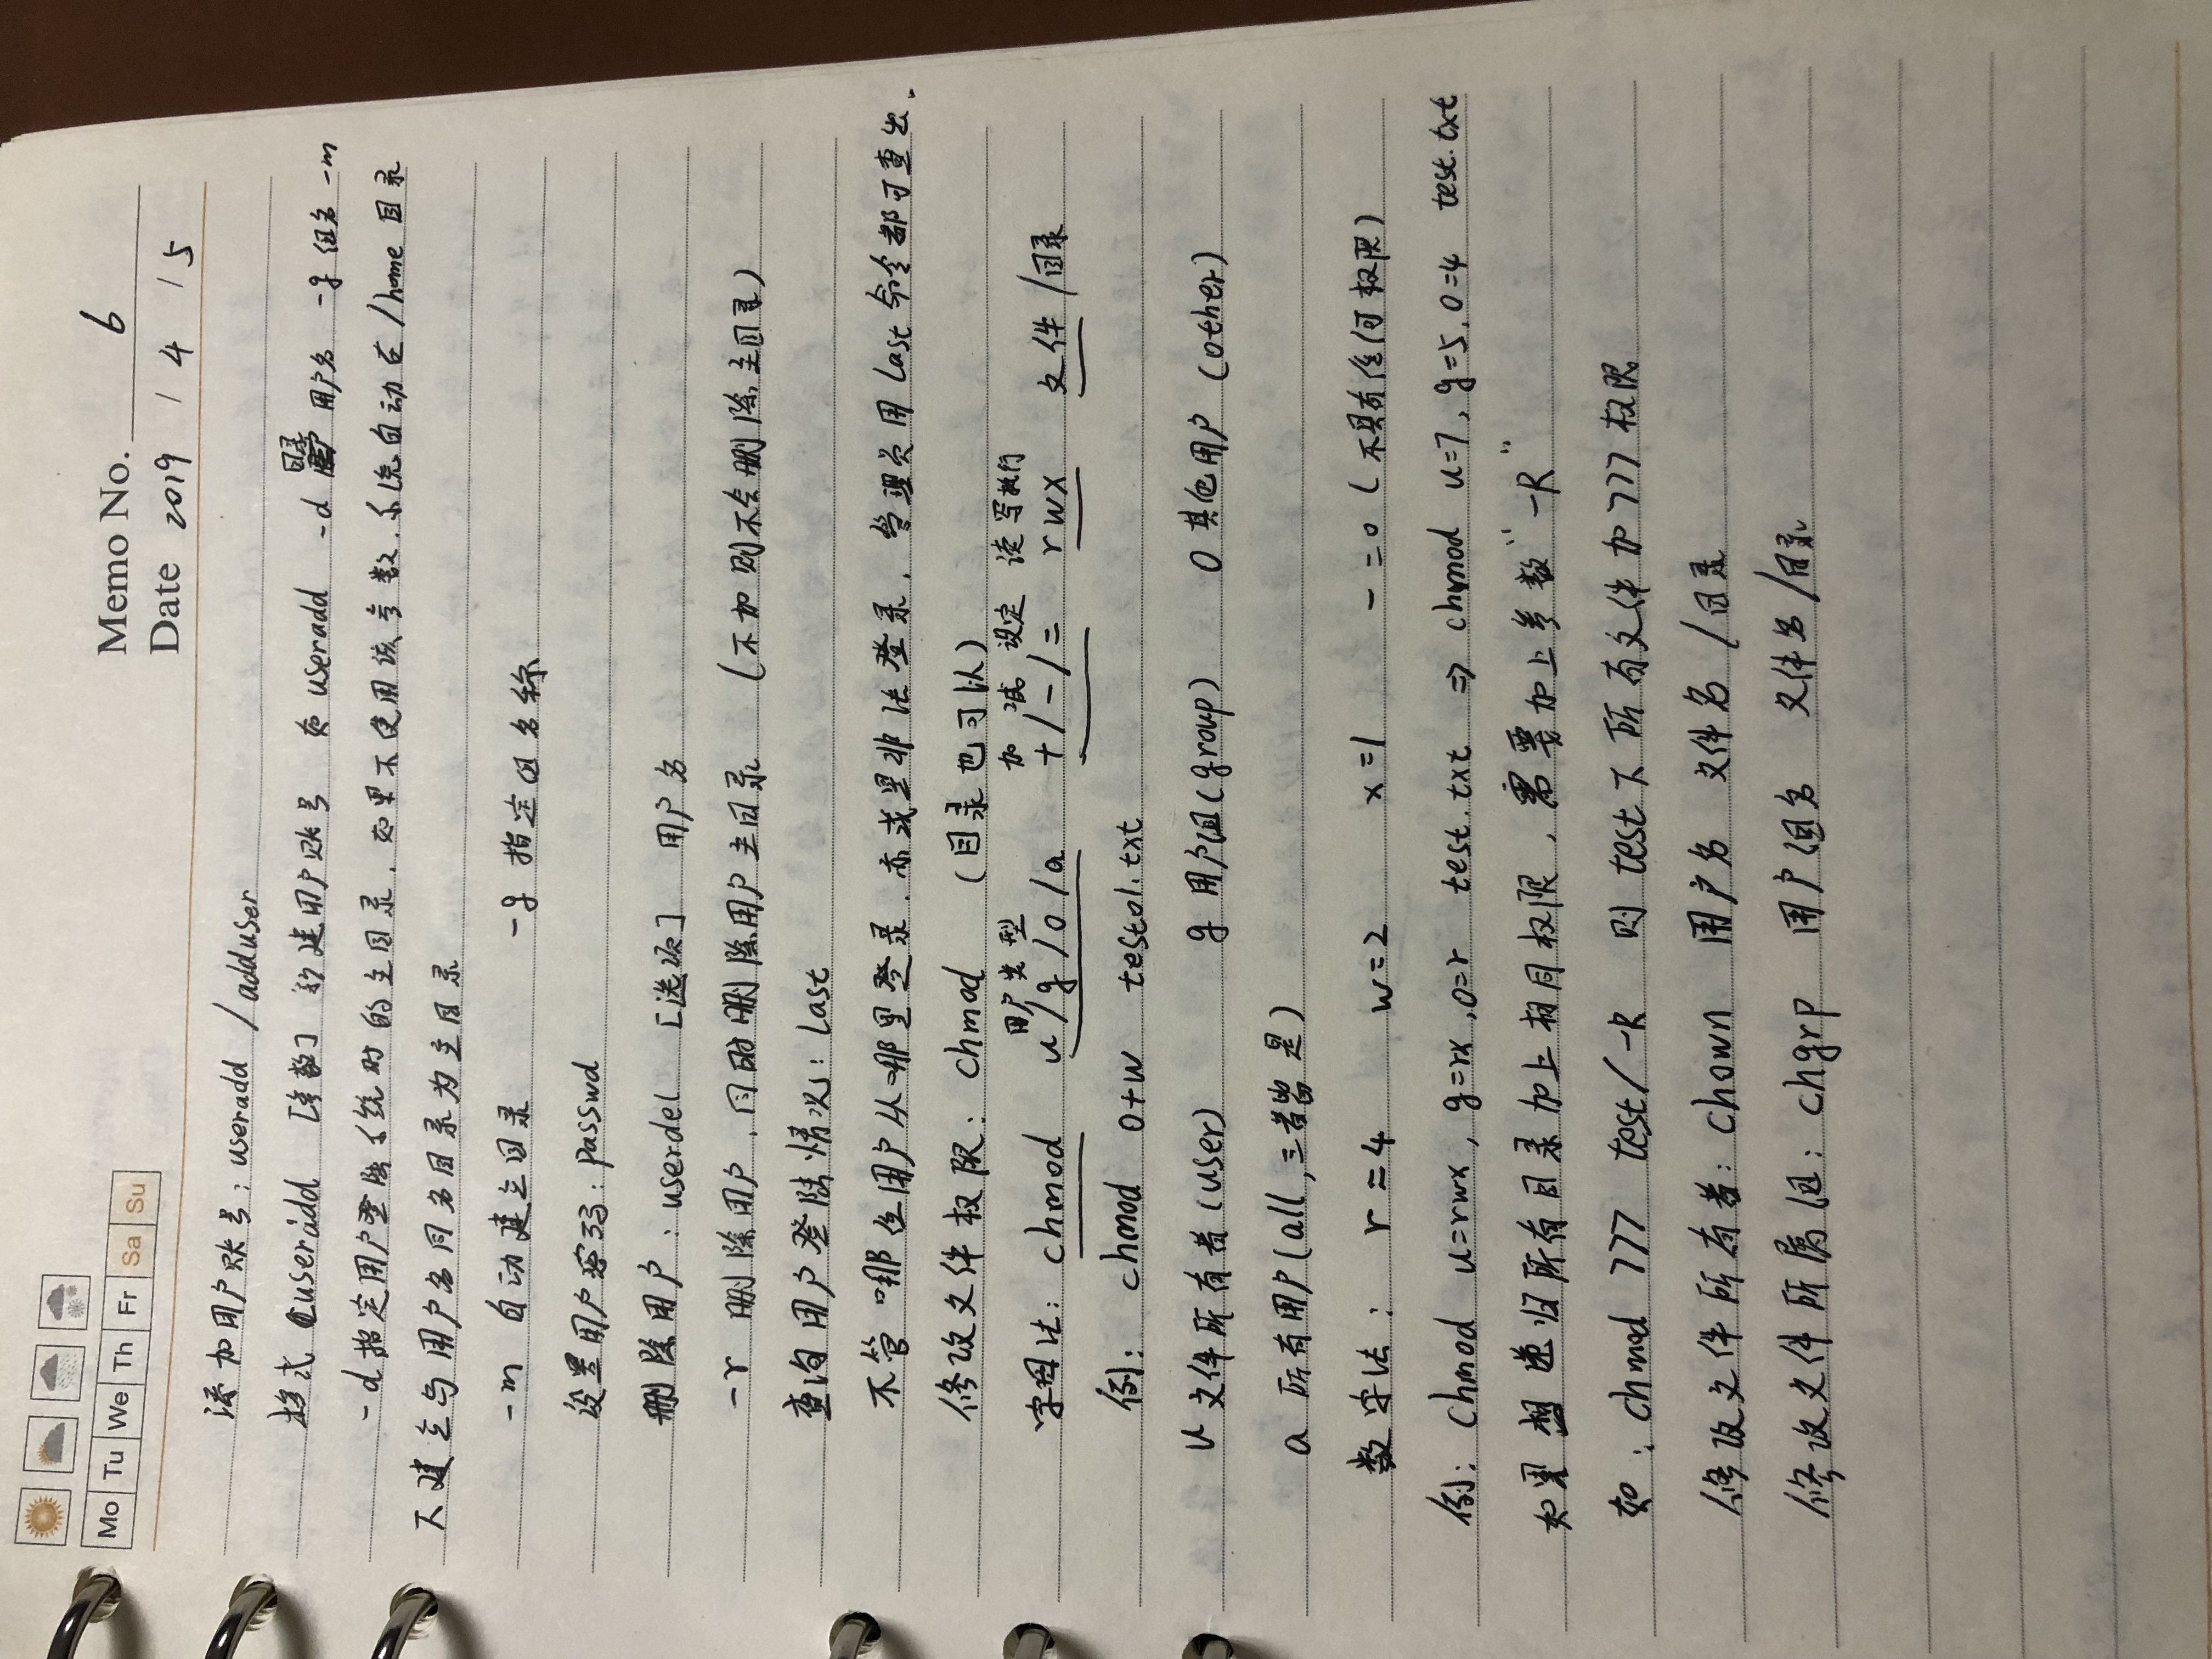 Memo No. 6
Mo Tu We Th Fr Sa Su
Date 2019 / 4 / 5
添加用户账号：useradd /adduser
格式 useradd [参数] 新建用户账号 如 useradd -d 目录 用户名 -g 组名 -m
-d 指定用户登陆系统时的主目录，如果不使用该参数，系统自动在/home目录
下建立与用户名同名目录为主目录
-m 自动建立目录 -g 指定组名称
设置用户密码：passwd
删除用户：userdel [选项] 用户名
-r 删除用户，同时删除用户主目录 (不加则不会删除主目录)
查询用户登陆情况：last
不管哪位用户从哪里登录，亦或是非法登录，管理员用last命令都可查出.
修改文件权限：chmod (目录也可以)
用户类型 加 减 设定 读写执行
字母法：chmod u/g/o/a +/-/= rwx 文件/目录
例：chmod o+w test01.txt
u 文件所有者(user) g 用户组(group) o 其他用户 (other)
a 所有用户(all,三者皆是)
数字法：r=4 w=2 x=1 - =0 (不具有任何权限)
例：chmod u=rwx,g=rx,o=r test.txt ⇒ chmod u=7,g=5,o=4 test.txt
如果想递归所有目录加上相同权限，需要加上参数"-R"
如：chmod 777 test/-R 则 test下所有文件加777权限
修改文件所有者：chown 用户名 文件名/目录
修改文件所属组：chgrp 用户组名 文件名/目录